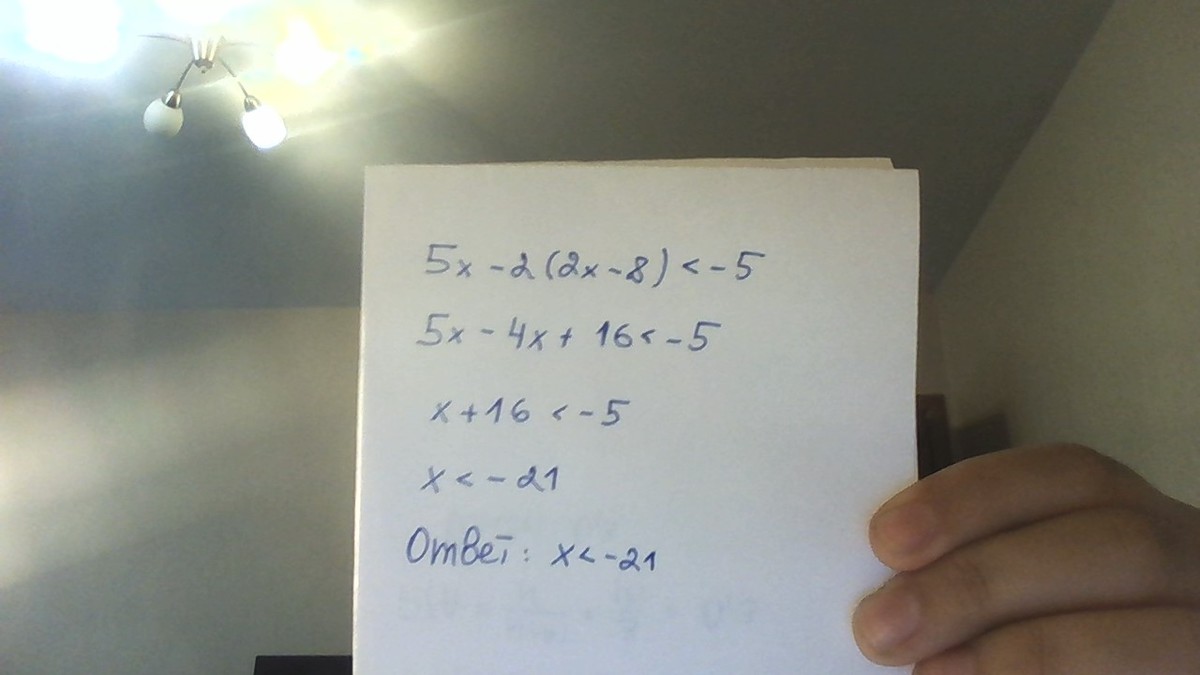 5x - 2(2x - 8) < -5
5x - 4x + 16 < -5
x + 16 < -5
x < -21
Ответ: x < -21